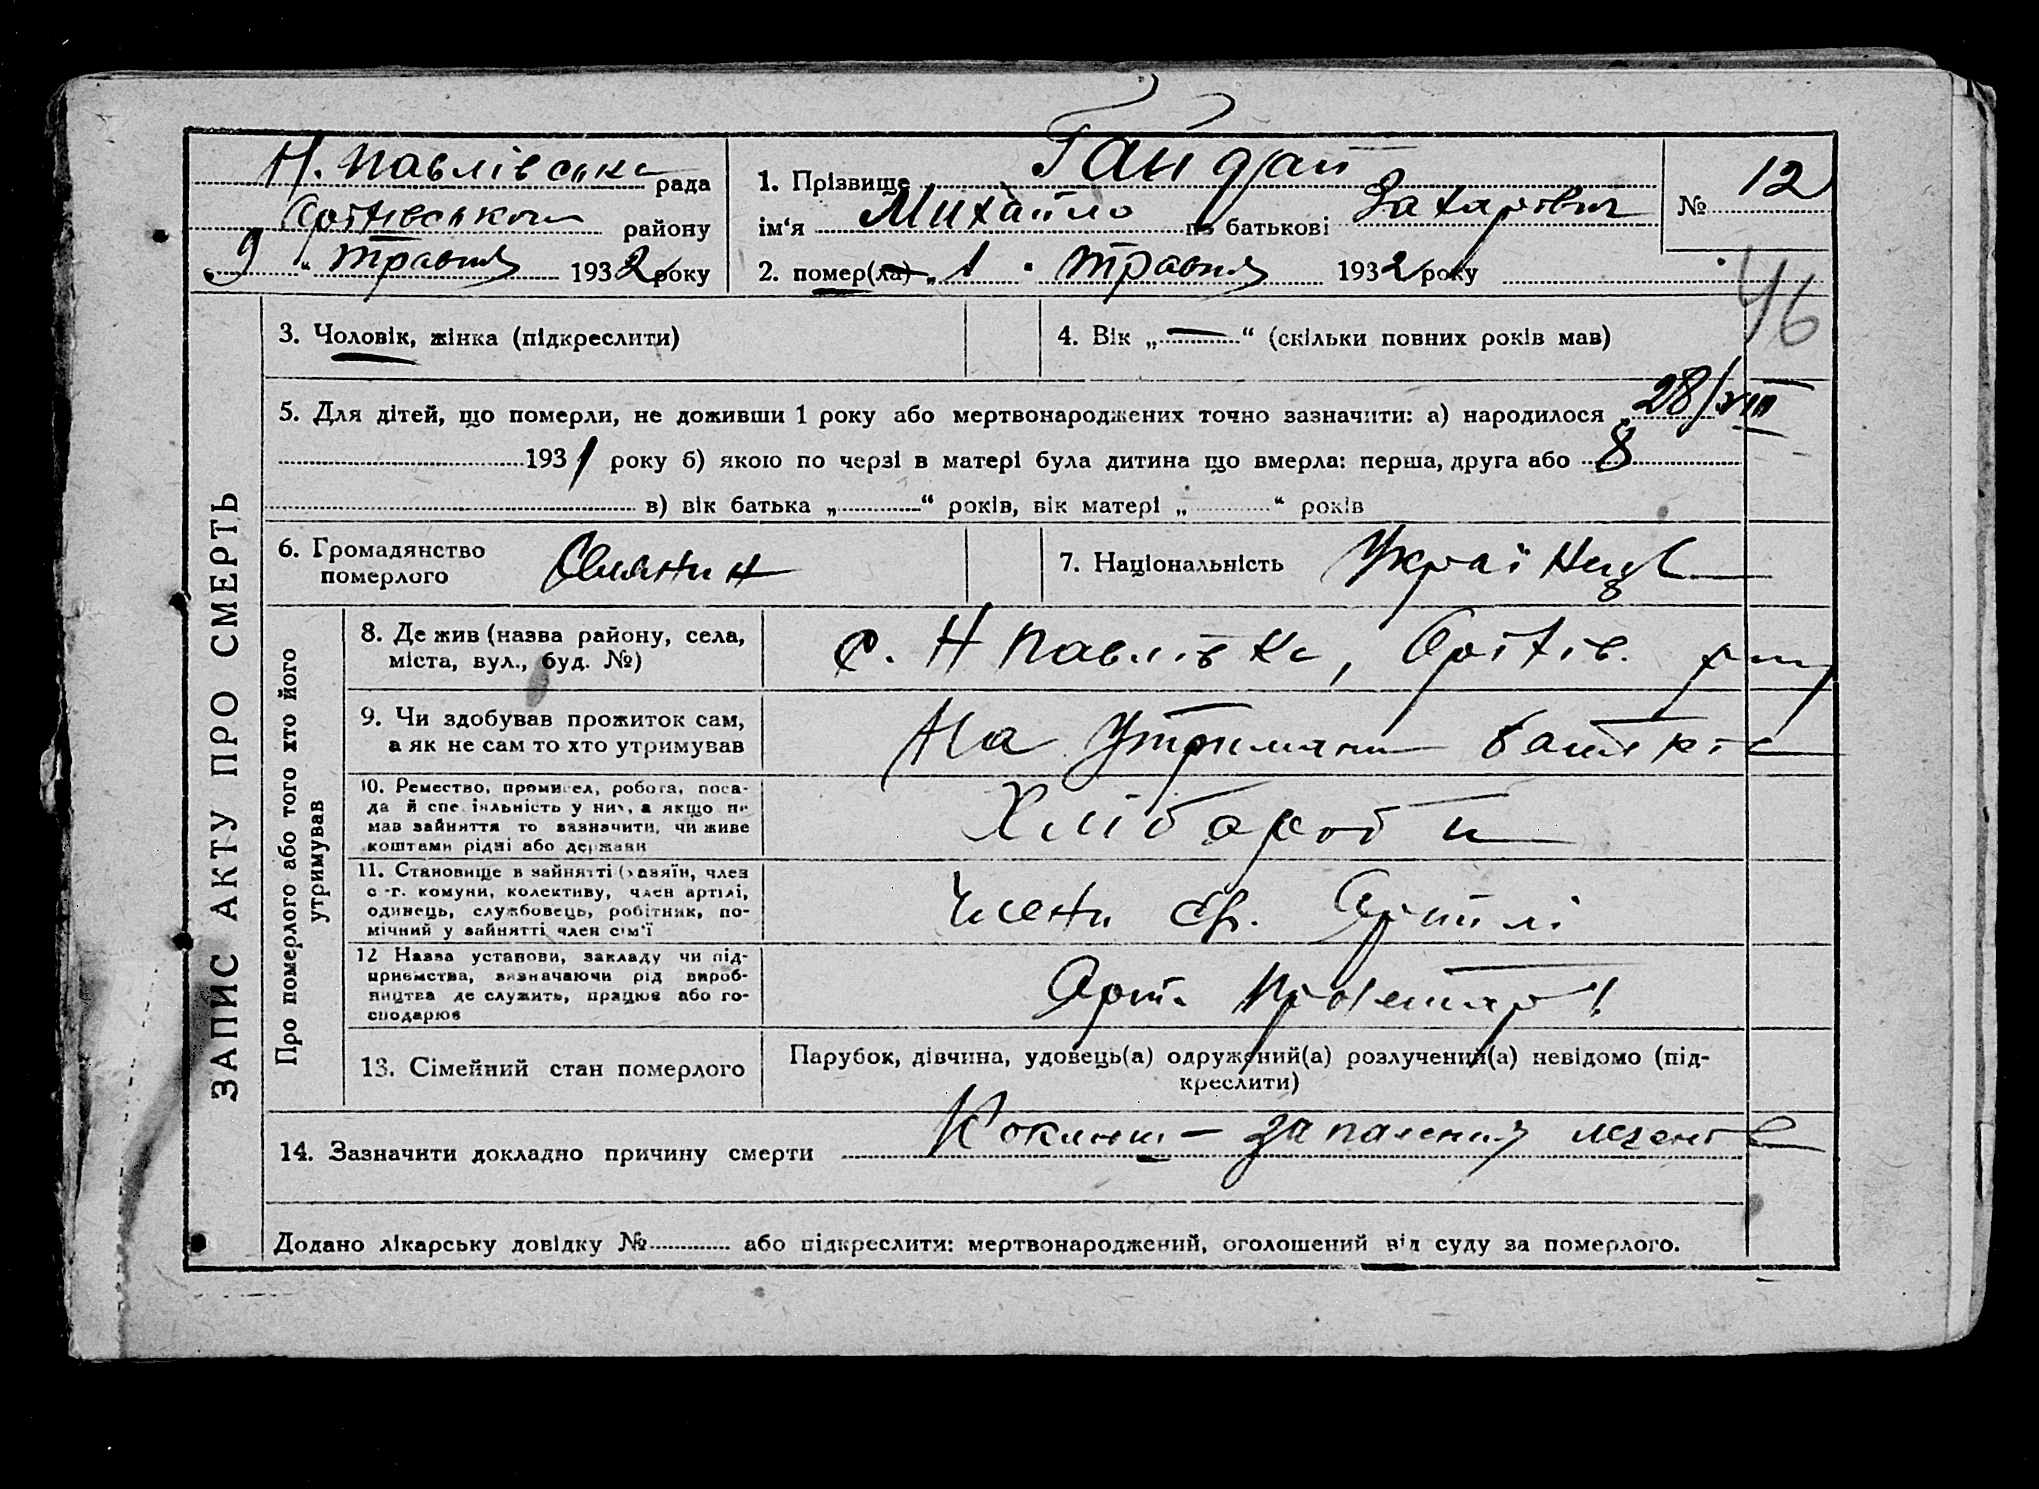 Н. Павлівська рада
району
9 " травня 1932 року
1. Прізвище Гайдай
ім'я Михайло по батькові Захарович
2. помер(ла) " 1 " травня 1932 року
№ 12
46
ЗАПИС АКТУ ПРО СМЕРТЬ
3. Чоловік, жінка (підкреслити)
4. Вік „ — “ (скільки повних років мав)
5. Для дітей, що померли, не доживши 1 року або мертвонароджених точно зазначити: а) народилося „ 28/VIII
1931 року б) якою по черзі в матері була дитина що вмерла: перша, друга або 8
в) вік батька „ “ років, вік матері „ “ років
6. Громадянство
померлого
Селянин
7. Національність Українець
Про померлого або того хто його
утримував
8. Де жив (назва району, села,
міста, вул., буд. №)
с. Н Павлівка,
9. Чи здобував прожиток сам,
а як не сам то хто утримував
На утриманні батьків
10. Ремество, промисел, робота, поса-
да й спеціяльність у них, а якщо не
мав зайняття то зазначити, чи живе
коштами рідні або держави
Хлібороби
11. Становище в зайнятті (хазяїн, член
с.-г. комуни, колективу, член артілі,
одинець, службовець, робітник, по-
мічний у зайнятті член сім'ї
Члени Артілі
12 Назва установи, закладу чи під-
приємства, визначаючи рід вироб-
ництва де служить, працює або го-
сподарює
Арт.
13. Сімейний стан померлого
Парубок, дівчина, удовець(а) одружений(а) розлучений(а) невідомо (під-
креслити)
14. Зазначити докладно причину смерти Коклюш – запалення легенів
Додано лікарську довідку № або підкреслити: мертвонароджений, оголошений від суду за померлого.